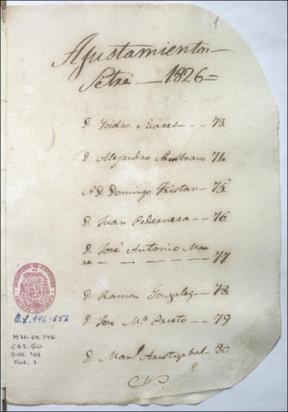 1
Ajustamientos
Setre — 1826=
D. Isidro Suares -- 73
D. Alejandro Sambrano 74
D. Domingo Tristan -- 75
D. Juan Pedernera -- 76
D. José Antonio 
-- 77
D. Ramon Gonzalez -- 78
D. José Ma. Prieto -- 79
D. Man. Aristizabal - 80
O.L. 146-656
MH-OL 146
CAJ. 50
DOC 40
FOL. 1